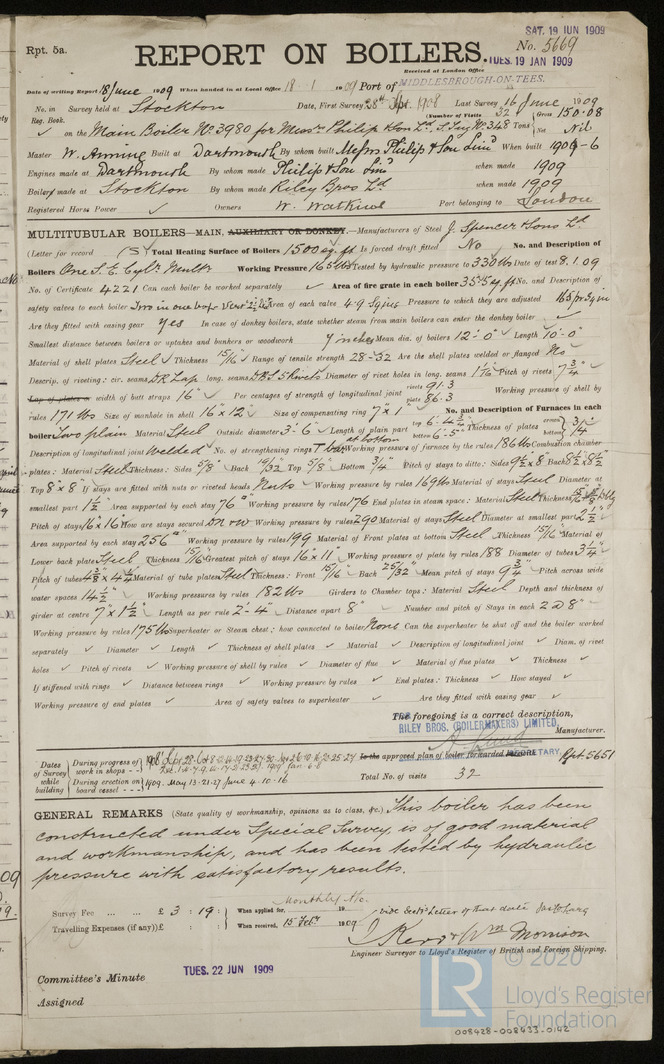 SAT. 19 JUN 1909
Rpt. 5a.
REPORT ON BOILERS.
No. 5669
TUES. 19 JAN 1909
Received at London Office
Date of writing Report 18 June 1909 When handed in at Local Office 18.1 1909 Port of MIDDLESBROUGH-ON-TEES.
No. in Survey held at Stockton Date, First Survey 28th Spt. 1908 Last Survey 16 June 1909
Reg. Book. (Number of Visits 32)
on the Main Boiler No 3980 for Messrs Philip & Son Ld. S. Tug No 348 Tons Gross 150.08 Net Nil
Master W. Anning Built at Dartmouth By whom built Messrs Philip & Son Limd When built 1909-6
Engines made at Dartmouth By whom made Philip & Son Limd when made 1909
Boilers made at Stockton By whom made Riley Bros Ld when made 1909
Registered Horse Power Owners W. Watkins Port belonging to London
MULTITUBULAR BOILERS—MAIN, AUXILIARY OR DONKEY.—Manufacturers of Steel J. Spencer & Sons Ld.
(Letter for record (S)) Total Heating Surface of Boilers 1500 sq. ft. Is forced draft fitted No No. and Description of
Boilers One S.E. Cylr. Multr Working Pressure 165 lbs Tested by hydraulic pressure to 330 lbs Date of test 8.1.09
No. of Certificate 4221 Can each boiler be worked separately Area of fire grate in each boiler 35.5 sq. ft. No. and Description of
safety valves to each boiler Two in one box Area of each valve 4.9 sq ins Pressure to which they are adjusted 165 pr sq in
Are they fitted with easing gear Yes In case of donkey boilers, state whether steam from main boilers can enter the donkey boiler
Smallest distance between boilers or uptakes and bunkers or woodwork 7 inches Mean dia. of boilers 12'-0" Length 10'-0"
Material of shell plates Steel Thickness 15/16" Range of tensile strength 28-32 Are the shell plates welded or flanged No
Descrip. of riveting: cir. seams D.R. Lap long. seams D.B.S. 5 Rivets Diameter of rivet holes in long. seams 1 1/16" Pitch of rivets 7 3/4"
Lap of plates or width of butt straps 16" Per centages of strength of longitudinal joint rivets 91.3 plate 86.3 Working pressure of shell by
rules 171 lbs Size of manhole in shell 16" x 12" Size of compensating ring 7" x 1" No. and Description of Furnaces in each
boiler Two plain Material Steel Outside diameter 3'-6" Length of plain part top 6'-4 3/4" bottom 6'-5" Thickness of plates crown 3/4 bottom
Description of longitudinal joint Welded No. of strengthening rings at bottom Working pressure of furnace by the rules 186 lbs Combustion chamber
plates: Material Steel Thickness: Sides 5/8" Back 19/32" Top 5/8" Bottom 3/4" Pitch of stays to ditto: Sides 9 1/2" x 8" Back 8 1/2" x 8 1/2"
Top 8" x 8" If stays are fitted with nuts or riveted heads Nuts Working pressure by rules 169 lbs Material of stays Steel Diameter at
smallest part 1 1/2" Area supported by each stay 76" Working pressure by rules 176 End plates in steam space: Material Steel Thickness
Pitch of stays 16" x 16" How are stays secured DN & W Working pressure by rules 290 Material of stays Steel Diameter at smallest part 2 1/2"
Area supported by each stay 256" Working pressure by rules 199 Material of Front plates at bottom Steel Thickness 15/16" Material of
Lower back plate Steel Thickness 15/16" Greatest pitch of stays 16" x 11" Working pressure of plate by rules 188 Diameter of tubes 3 1/4"
Pitch of tubes 4 3/8 x 4 1/4 Material of tube plates Steel Thickness: Front 15/16" Back 25/32" Mean pitch of stays 9 3/4" Pitch across wide
water spaces 14 1/2" Working pressures by rules 182 lbs Girders to Chamber tops: Material Steel Depth and thickness of
girder at centre 7" x 1 1/2" Length as per rule 2'-4" Distance apart 8" Number and pitch of Stays in each 2 @ 8"
Working pressure by rules 175 lbs Superheater or Steam chest; how connected to boiler None Can the superheater be shut off and the boiler worked
separately Diameter Length Thickness of shell plates Material Description of longitudinal joint Diam. of rivet
holes Pitch of rivets Working pressure of shell by rules Diameter of flue Material of flue plates Thickness
If stiffened with rings Distance between rings Working pressure by rules End plates: Thickness How stayed
Working pressure of end plates Area of safety valves to superheater Are they fitted with easing gear
The foregoing is a correct description,
RILEY BROS. (BOILERMAKERS) LIMITED, Manufacturer.
SECRETARY.
Dates of Survey while building
During progress of work in shops - -
During erection on board vessel - - - 1909. May 13.21.27 June 4.10.16
Is the approved plan of boiler forwarded herewith Rpt 5651
Total No. of visits 32
GENERAL REMARKS (State quality of workmanship, opinions as to class, &c.) This boiler has been
constructed under Special Survey, is of good material
and workmanship, and has been tested by hydraulic
pressure with satisfactory results.
Survey Fee ... ... £ 3 : 19 : When applied for, Monthly A/c. 19
Travelling Expenses (if any) £ : : When received, 15 Feby. 1909
vide Secty's Letter of that date
J. Kerr & Wm Morrison
Engineer Surveyor to Lloyd's Register of British and Foreign Shipping.
Committee's Minute TUES. 22 JUN 1909
Assigned
LR
© 2020
Lloyd's Register
Foundation
008428-008433-0142